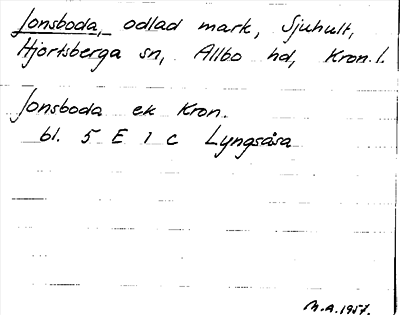 Jonsboda, odlad mark, Sjuhult,
Hjortsberga sn, Allbo hd, Kron. l.
Jonsboda ek Kron.
bl. 5 E 1 c Lyngsåsa
M.A. 1957.